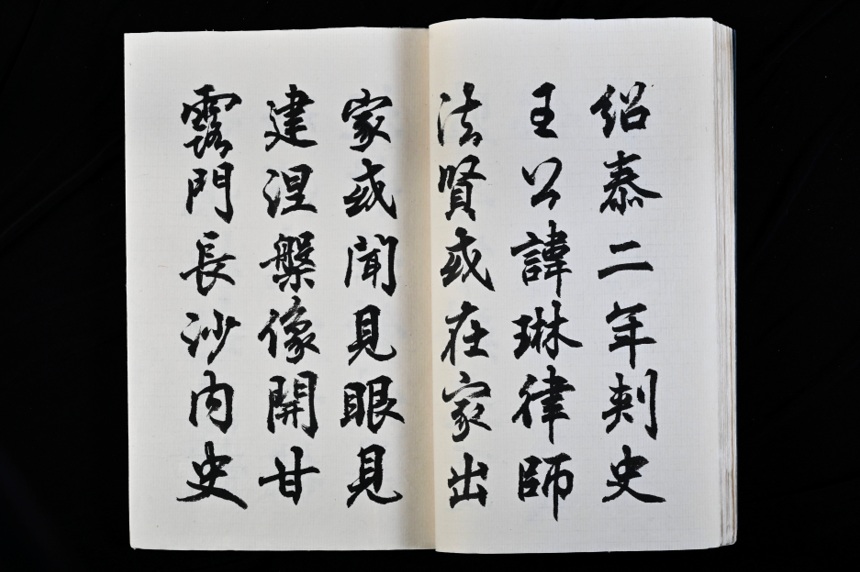 绍泰二年刾史
王公諱琳律師
法賢或在家出
家或聞見眼見
建涅槃像開甘
露門長沙内史